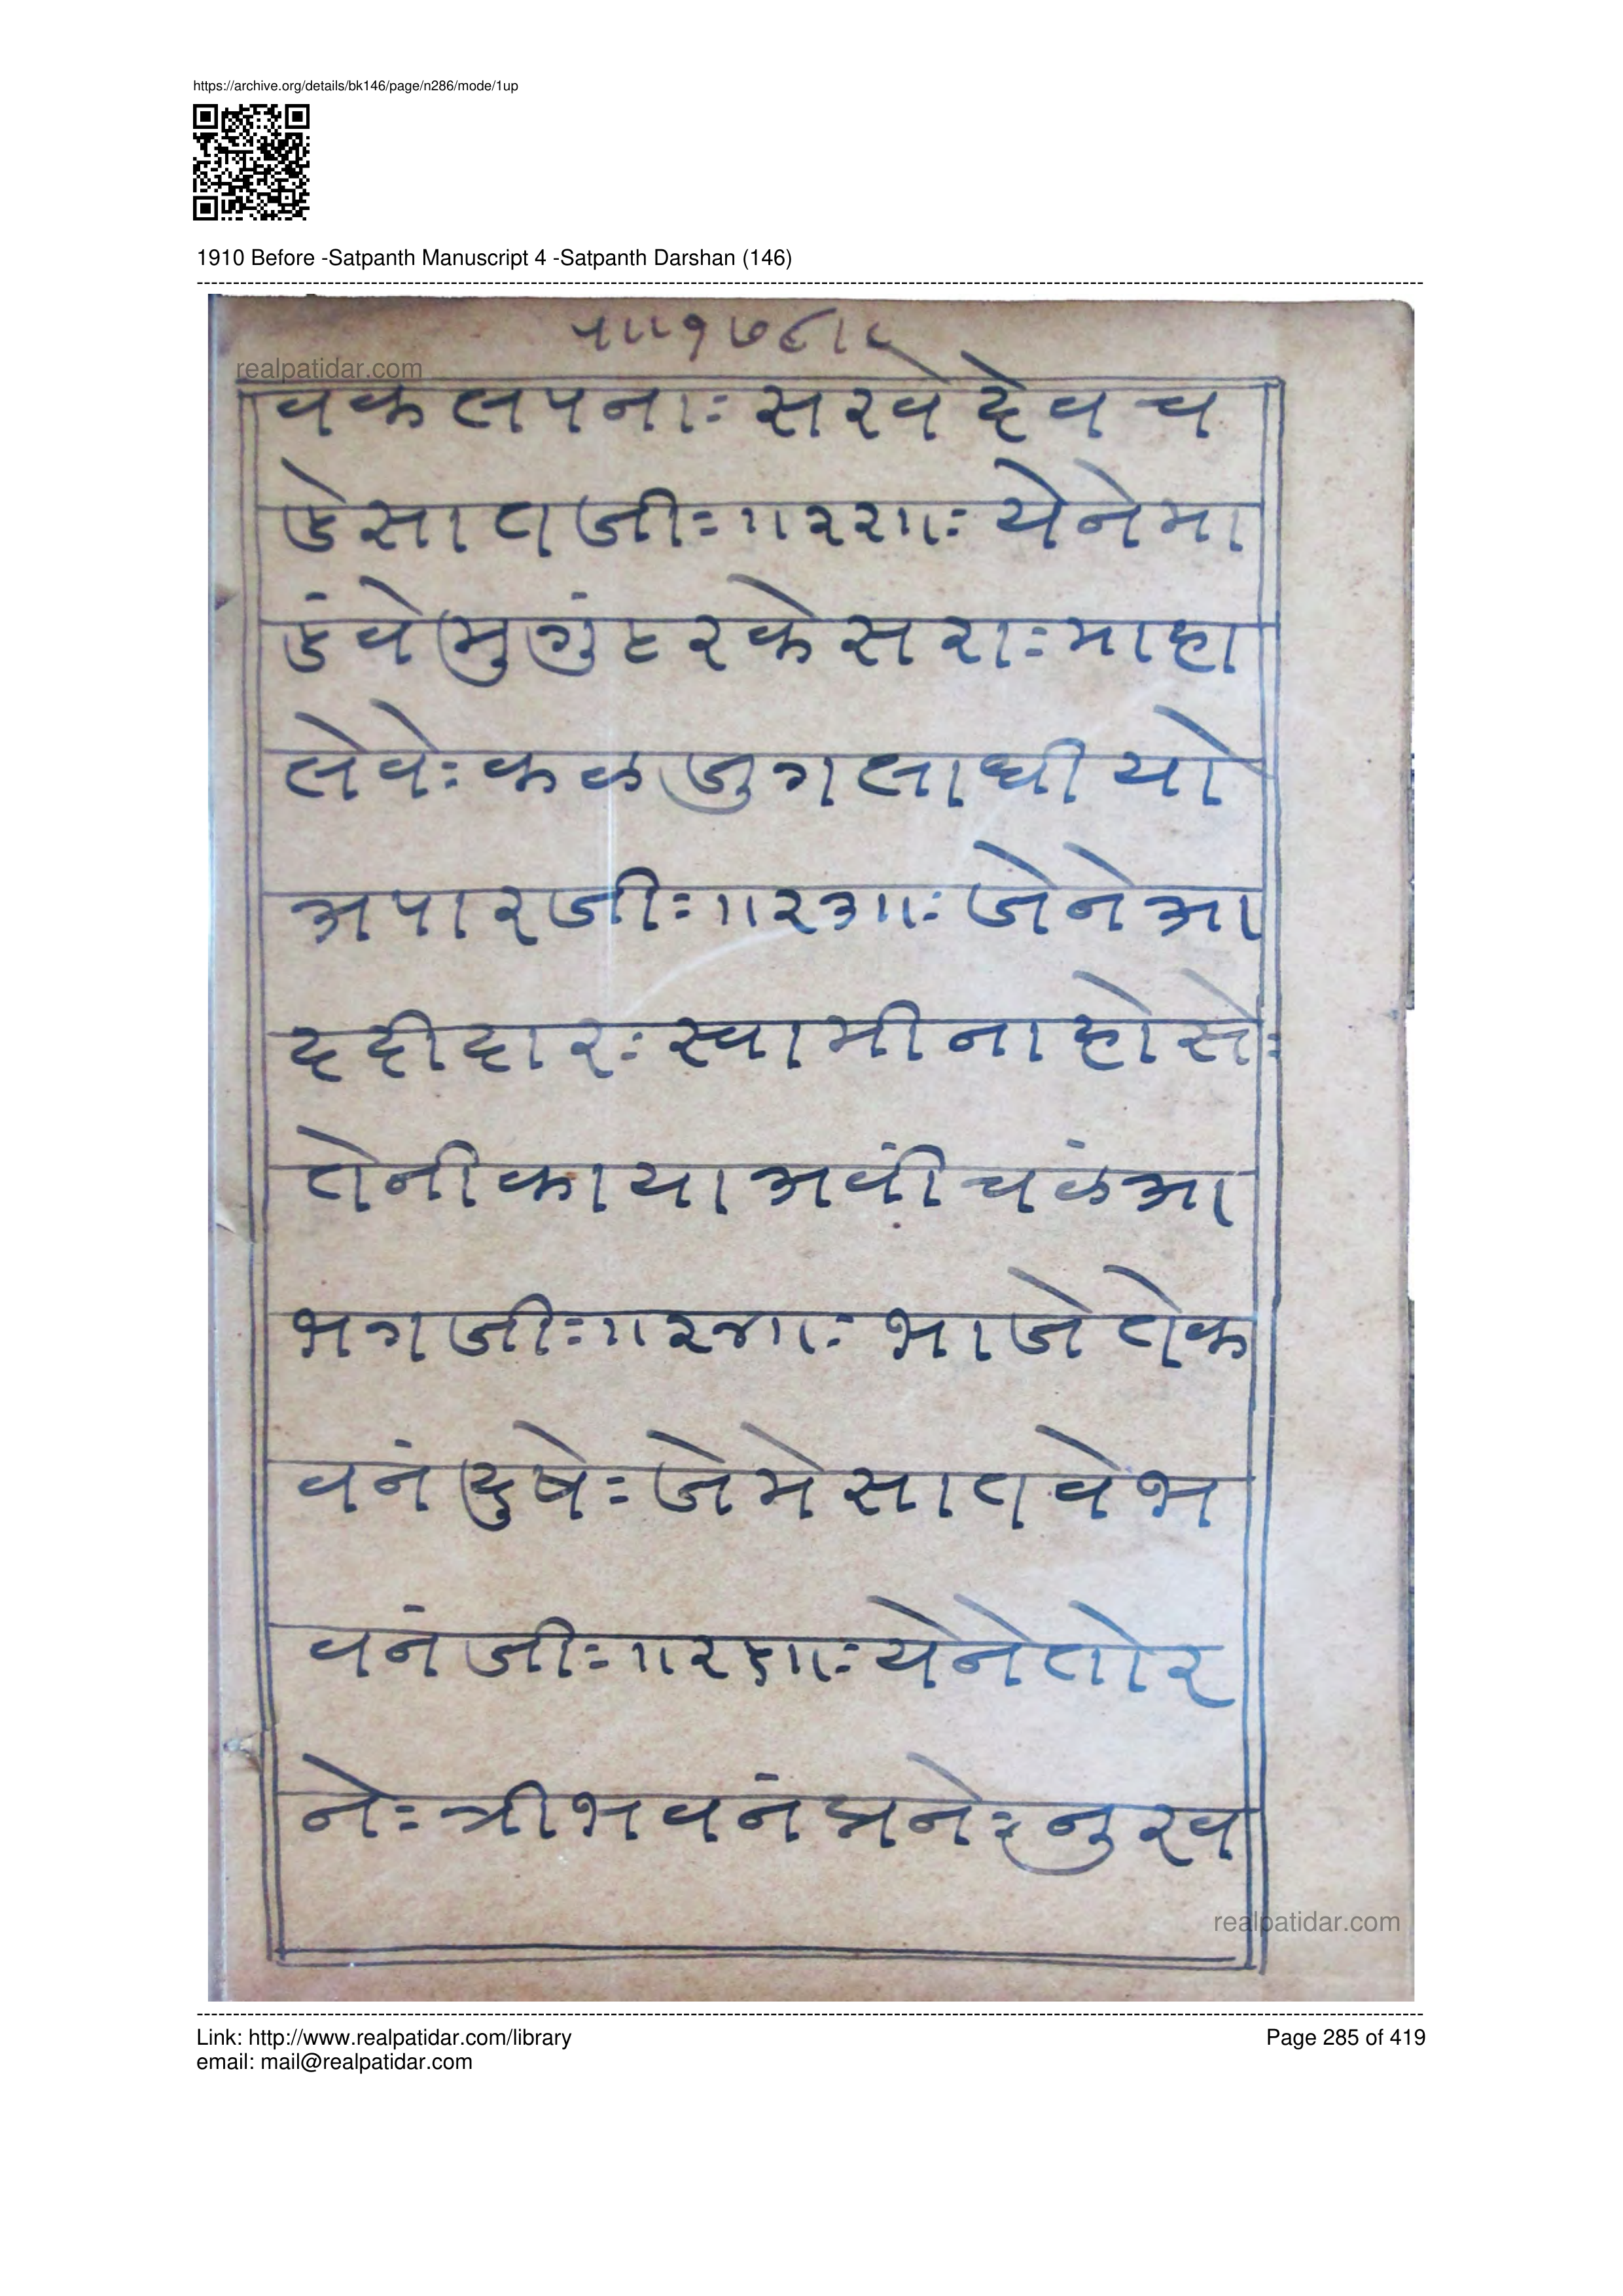 https://archive.org/details/bk146/page/n286/mode/1up
1910 Before -Satpanth Manuscript 4 -Satpanth Darshan (146)
realpatidar.com
वकलपनाः सरवे देव च
डे सात जीः ॥२२॥ः येने मा
डं वे मुगुंट र केसराः माहा
लेवेः क ळ जुग लाधी यो
अपार जीः ॥२३॥ः जेने आ
द दीदारः स्वामी ना होसेः
तेनी काया अवीं चळं आ
भग जीः ॥२४॥ः भाजे ते क
वनं दुषेः जेमे सात वे भ
वनं जीः ॥२५॥ः येने तो र
नेः त्रीभवनं मनेः नु रव
realpatidar.com
Link: http://www.realpatidar.com/library
Page 285 of 419
email: mail@realpatidar.com